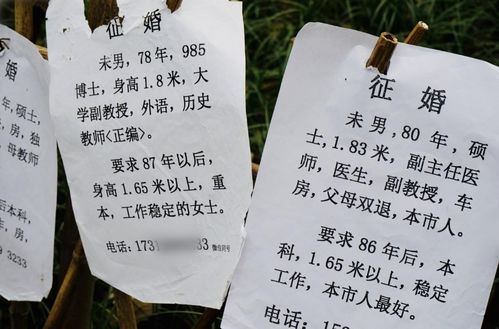 婚
年，硕士
，房，独
，母教师
后本科，
车，房，
9 3233
征 婚
未男，78 年，985
博士，身高 1.8 米，大
学副教授，外语，历史
教师<正编>。
要求 87 年以后，
身高 1.65 米以上，重
本，工作稳定的女士。
电话：1731 33 微信同号
征 婚
未男，80 年，硕
士，1.83 米，副主任医
师，医生，副教授，车
房，父母双退，本市人。
要求 86 年后，本
科，1.65 米以上，稳定
工作，本市人最好。
电话：15